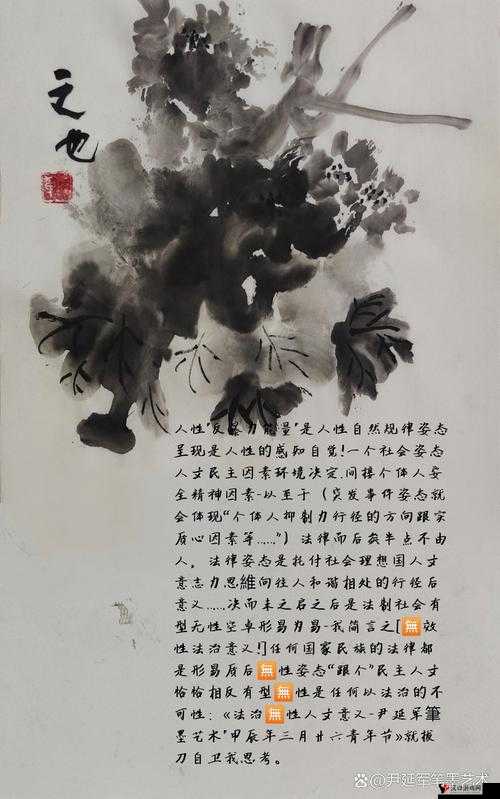 文也
人性"反暴力能量"是人性自然规律姿态
呈现是人性的感知自觉!一个社会姿态
人文民主因素环境决定.间接个体人安
全精神因素-以至于(突发事件姿态就
会体现"个体人抑制力行径的方向跟实
质心因素等……")法律而后矣半点不由
人。法律姿态是托付社会理想国人文
意志力思維向往人和谐相处的行径后
意义……决而未之启之后是法制社会有
型无性空卓形易力易-我简言之[🈚效
性法治意义!]任何国家民族的法律都
是形易质后🈚性姿态"跟个"民主人文
恰恰相反有型🈚性是任何以法治的不
可性:《法治🈚性人文意义-尹延军筆
墨艺术"甲辰年三月廿六青年节》就拔
刀自卫我思考。
尹延军笔墨艺术